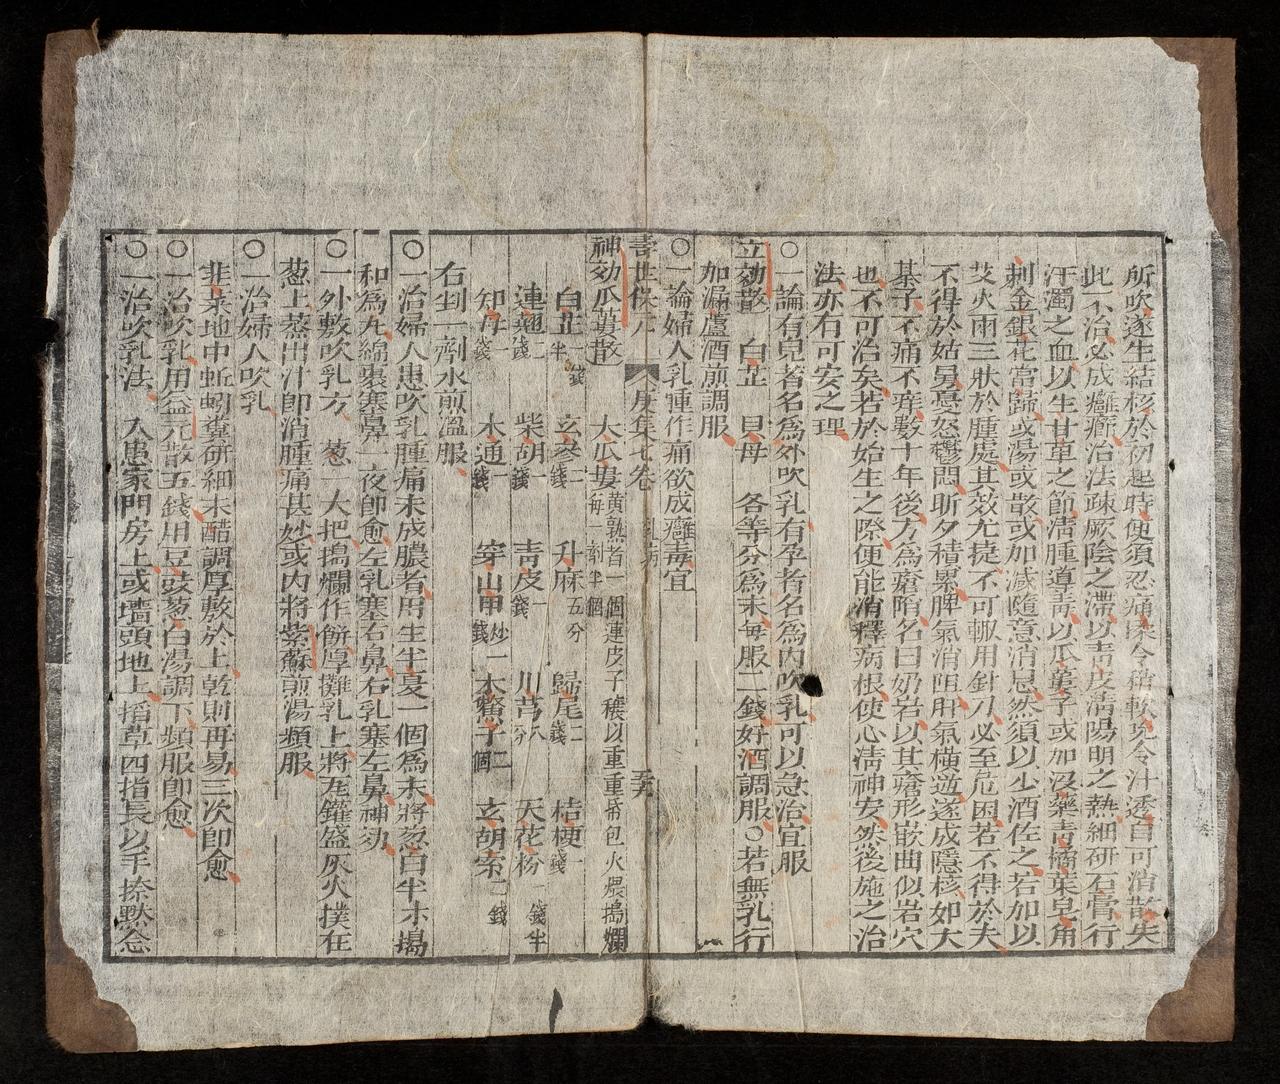 所吹遂生結核於初起時便須忍痛揉令稍軟吮令汁透自可消散失
此不治必成癰癤治法疎厥陰之滯以青皮清陽明之熱細研石膏行
汙濁之血以生甘草之節消腫導毒以瓜蔞子或加沒藥青橘葉皂角
刺金銀花當歸或湯或散或加減隨意消息然須以少酒佐之若加以
艾火兩三狀於腫處其效尤捷不可輒用針刀必至危困若不得於夫
不得於姑舅憂怒鬱悶昕夕積累脾氣消阻肝氣橫逆遂成隱核如大
棊子不痛不痒數十年後方為瘡陷名曰奶岩以其瘡形嵌曲似岩穴
也不可治矣若於始生之際便能消釋病根使心清神安然後施之治
法亦有可安之理
○一論有兒者名為外吹乳有孕者名為內吹乳可以急治宜服
立効散 白芷 貝母 各等分為末每服二錢好酒調服○若無乳行
加漏蘆酒煎調服
○一論婦人乳腫作痛欲成癰毒宜
壽世保元 庚集七卷 乳病 五九
神効瓜蔞散 大瓜蔞黃熟者一個連皮子穰以重重帋包火煨搗爛每一劑半個
白芷一錢半 玄參一錢 升麻五分 歸尾二錢 桔梗一錢
連翹二錢 柴胡一錢 青皮一錢 川芎八分 天花粉一錢半
知母一錢 木通一錢 穿山甲炒一錢 木鱉子二個 玄胡索二錢
右剉一劑水煎溫服
○一治婦人患吹乳腫痛未成膿者用生半夏一個為末將葱白半寸搗
和為丸綿裹塞鼻一夜即愈左乳塞右鼻右乳塞左鼻神効
○一外敷吹乳方 葱一大把搗爛作餅厚攤乳上將瓦罐盛灰火撲在
葱上蒸出汁即消腫痛甚妙或內將紫蘇煎湯頻服
○一治婦人吹乳
韭菜地中蚯蚓糞研細末醋調厚敷於上乾則再易三次即愈
○一治吹乳用益元散五錢用豆豉葱白湯調下頻服即愈
○一治吹乳法 入患家門房上或墻頭地上掐草四指長以手捺默念